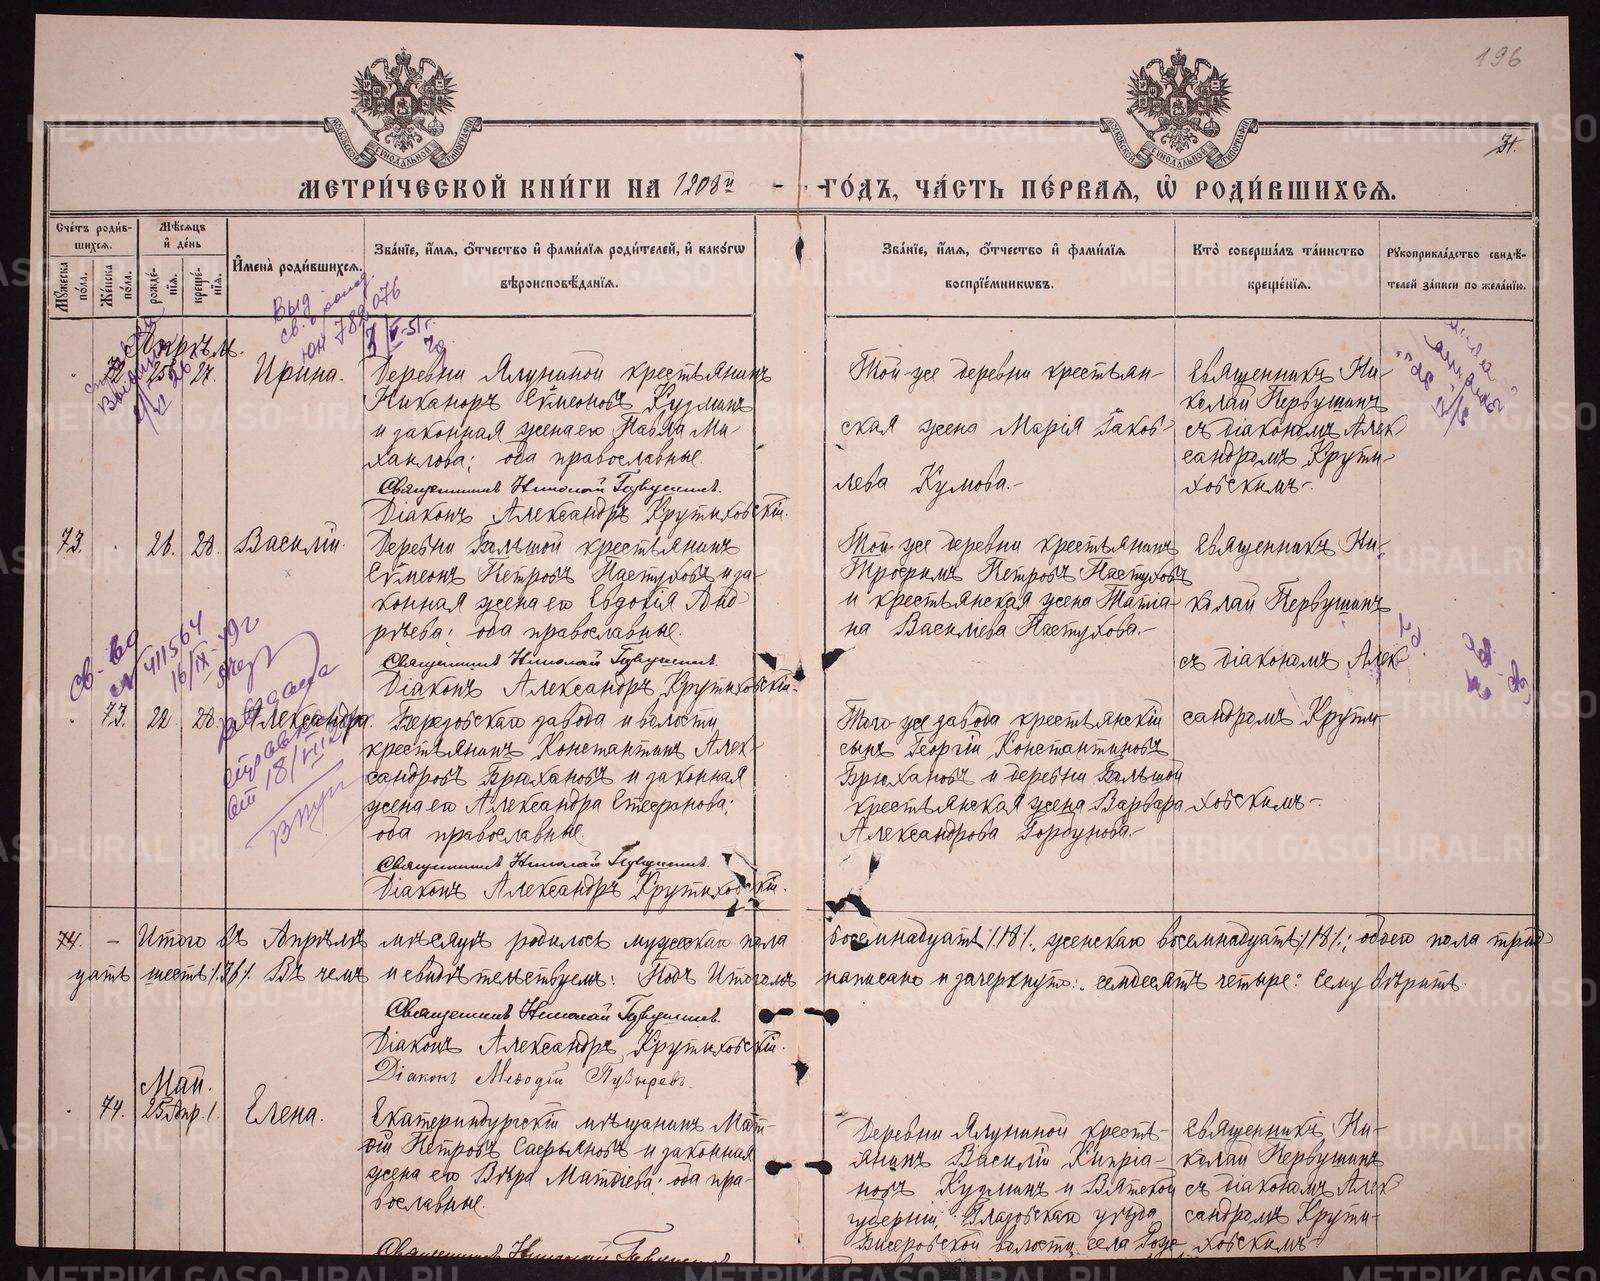 196
31.
МЕТРИ́ЧЕСКОЙ КНИ́ГИ НА 1908й ГО́ДЪ, ЧА́СТЬ ПЕ́РВАЯ, Ѽ РОДИ́ВШИХСЯ.
Сче́тъ роди́вшихся.
Му́жеска по́ла.
Же́нска по́ла.
Мѣ́сяцъ и҆ де́нь
рожде́нїя.
креще́нїя.
И҆мена̀ роди́вшихся.
Зва́нїе, и҆́мя, ѻ҆́тчество и҆ фами́лїя роди́телей, и҆ како́гѡ
вѣроисповѣ́данїя.
Зва́нїе, и҆́мя, ѻ҆́тчество и҆ фами́лїя
воспрїе́мниковъ.
Кто̀ соверша́лъ та́инство
креще́нїя.
Рꙋкоприкла́дство свидѣ́телей за́писи по жела́нїю.
Апрѣль.
72 25 27. Ирина.
Деревни Ялуниной крестьянинъ
Никаноръ Сѵмеоновъ Кузминъ
и законная жена его Павла Ми-
хаилова; оба православные.
Священникъ Николай Первушинъ.
Діаконъ Александръ Крутиховскій.
Той-же деревни крестьян-
ская жена Марія Іаков-
лева Кумова.-
Священникъ Ни-
колай Первушинъ
съ діакономъ Алек-
сандромъ Крути-
ховскимъ-.
73. 26. 28. Василій.
Деревни Большой крестьянинъ
Сѵмеонъ Петровъ Пастуховъ и за-
конная жена его Евдокія Анд-
реева; оба православные.
Священникъ Николай Первушинъ.
Діаконъ Александръ Крутиховскій.
Той-же деревни крестьянинъ
Трофимъ Петровъ Пастуховъ
и крестьянская жена Татіа-
на Василіева Пастухова.-
Священникъ Ни-
колай Первушинъ
съ діакономъ Алек-
сандромъ Крути-
ховскимъ-.
73. 22 28. Александра.
Березовскаго завода и волости
крестьянинъ Константинъ Алек-
сандровъ Брюхановъ и законная
жена его Александра Стефанова;
оба православные.
Священникъ Николай Первушинъ.
Діаконъ Александръ Крутиховскій.
Того-же завода крестьянскій
сынъ Георгій Константиновъ
Брюхановъ и деревни Большой
крестьянская жена Варвара
Александрова Горбунова.-
74. - Итого въ Апрѣлѣ мѣсяцѣ родилось мужескаго пола восемнадцать /18/, женскаго восемнадцать /18/; обоего пола трид-
цать шесть /36/. Въ чемъ и свидѣтельствуемъ: Подъ Итогомъ написано и зачеркнуто: семдесятъ четыре: Сему вѣрить.
Священникъ Николай Первушинъ.
Діаконъ Александръ Крутиховскій.
Діаконъ Меѳодій Пузыревъ.
Май.
74. 25 Апр. 1. Елена.
Екатеринбургскій мѣщанинъ Мат-
ѳій Петровъ Сафьяновъ и законная
жена его Вѣра Матѳіева; оба пра-
вославные.
Священникъ Николай Первушинъ
Деревни Ялуниной кресть-
янинъ Василій Кипріа-
новъ Кузминъ и Вятской
губерніи, Глазовскаго уѣзда
Бисеровской волости, села
Священникъ Ни-
колай Первушинъ
съ діакономъ Алек-
сандромъ Крути-
ховскимъ
Св-во
411564
16/IX-49г
18/VII
782076
51г.
METRIKI.GASO-URAL.RU